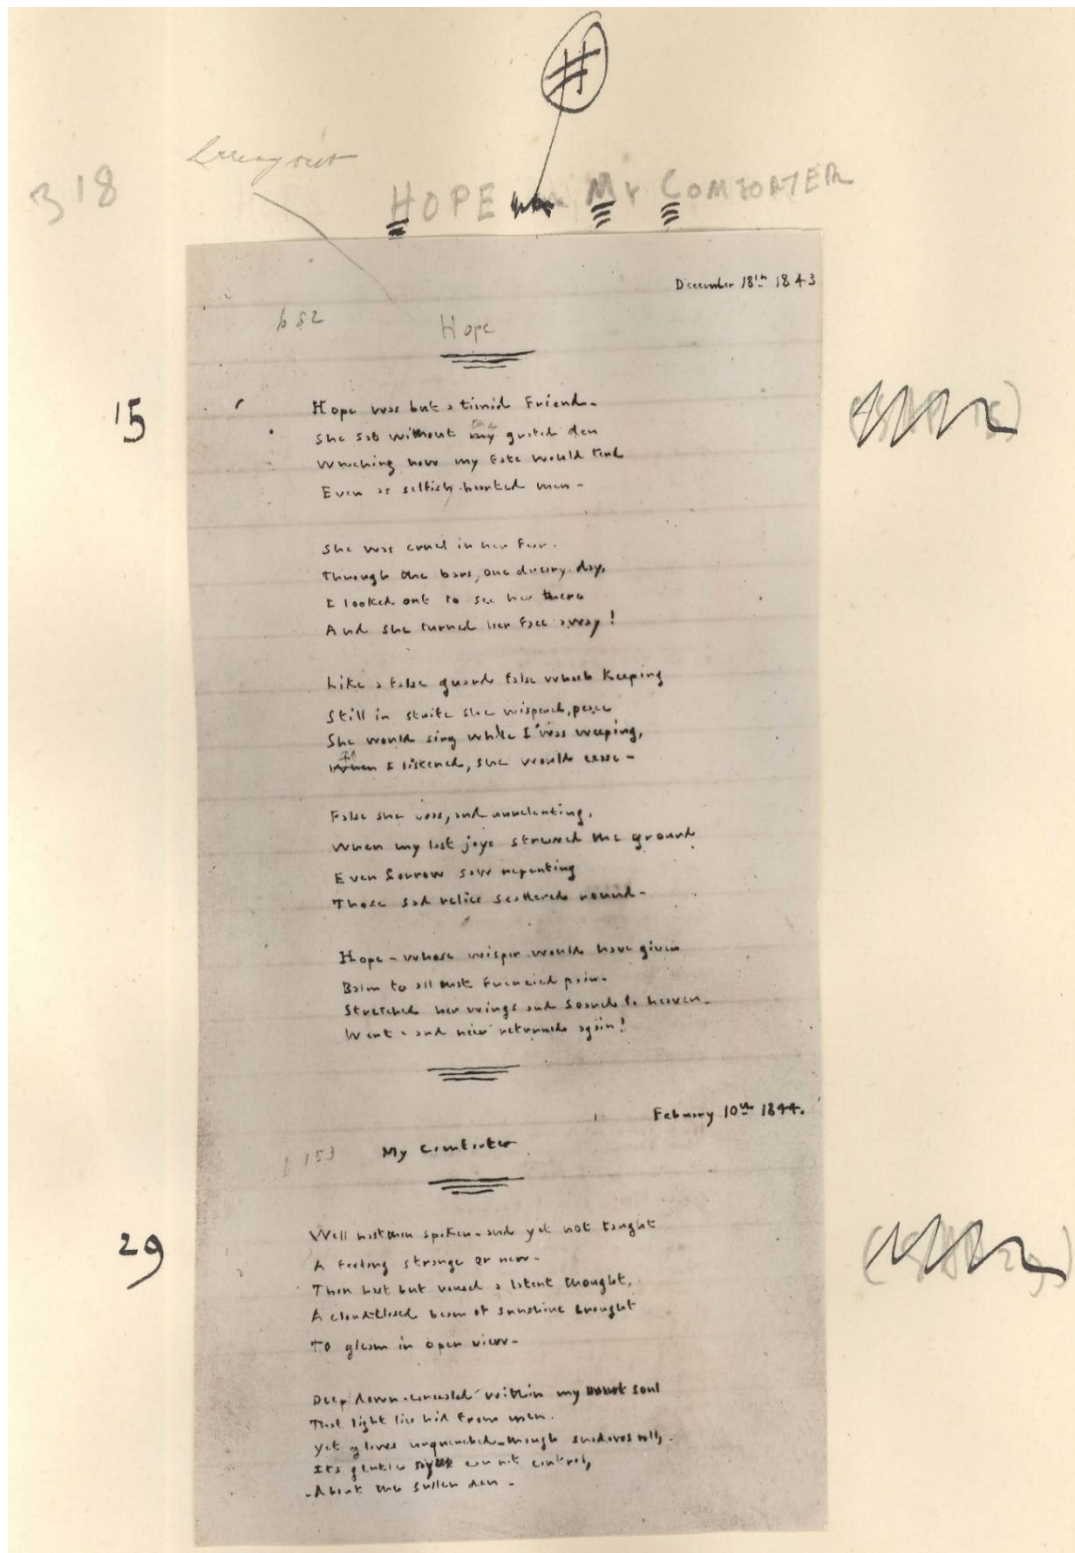 318
HOPE My COMFORTER
December 18th 1843
Hope
15
Hope was but a timid Friend-
She sat without my grated den
Watching how my fate would tend
Even as selfish-hearted men-
She was cruel in her fear.
Through the bars, one dreary day,
I looked out to see her there
And she turned her face away!
Like a false guard false watch keeping
Still in strife she wispered, peace
She would sing while I was weeping,
If
When I listened, she would cease-
False she was, and unrelenting.
When my last joys strewed the ground
Even Sorrow saw repenting
Those sad relics scattered round-
Hope - whose wisper would have given
Balm to all that frenzied pain-
Stretched her wings and soared to heaven-
Went - and neer returned again!
Febuary 10th 1844.
153
My Comforter
29
Well hast thou spoken - and yet not taught
A feeling strange or new-
Thou hast but roused a latent thought,
A cloud-closed beam of sunshine brought
To gleam in open view-
Deep down - concealed within my soul
That light lies hid from men.
Yet glows unquenched - though shadows roll,
Its gentle ray can not control,
-About the sullen den-